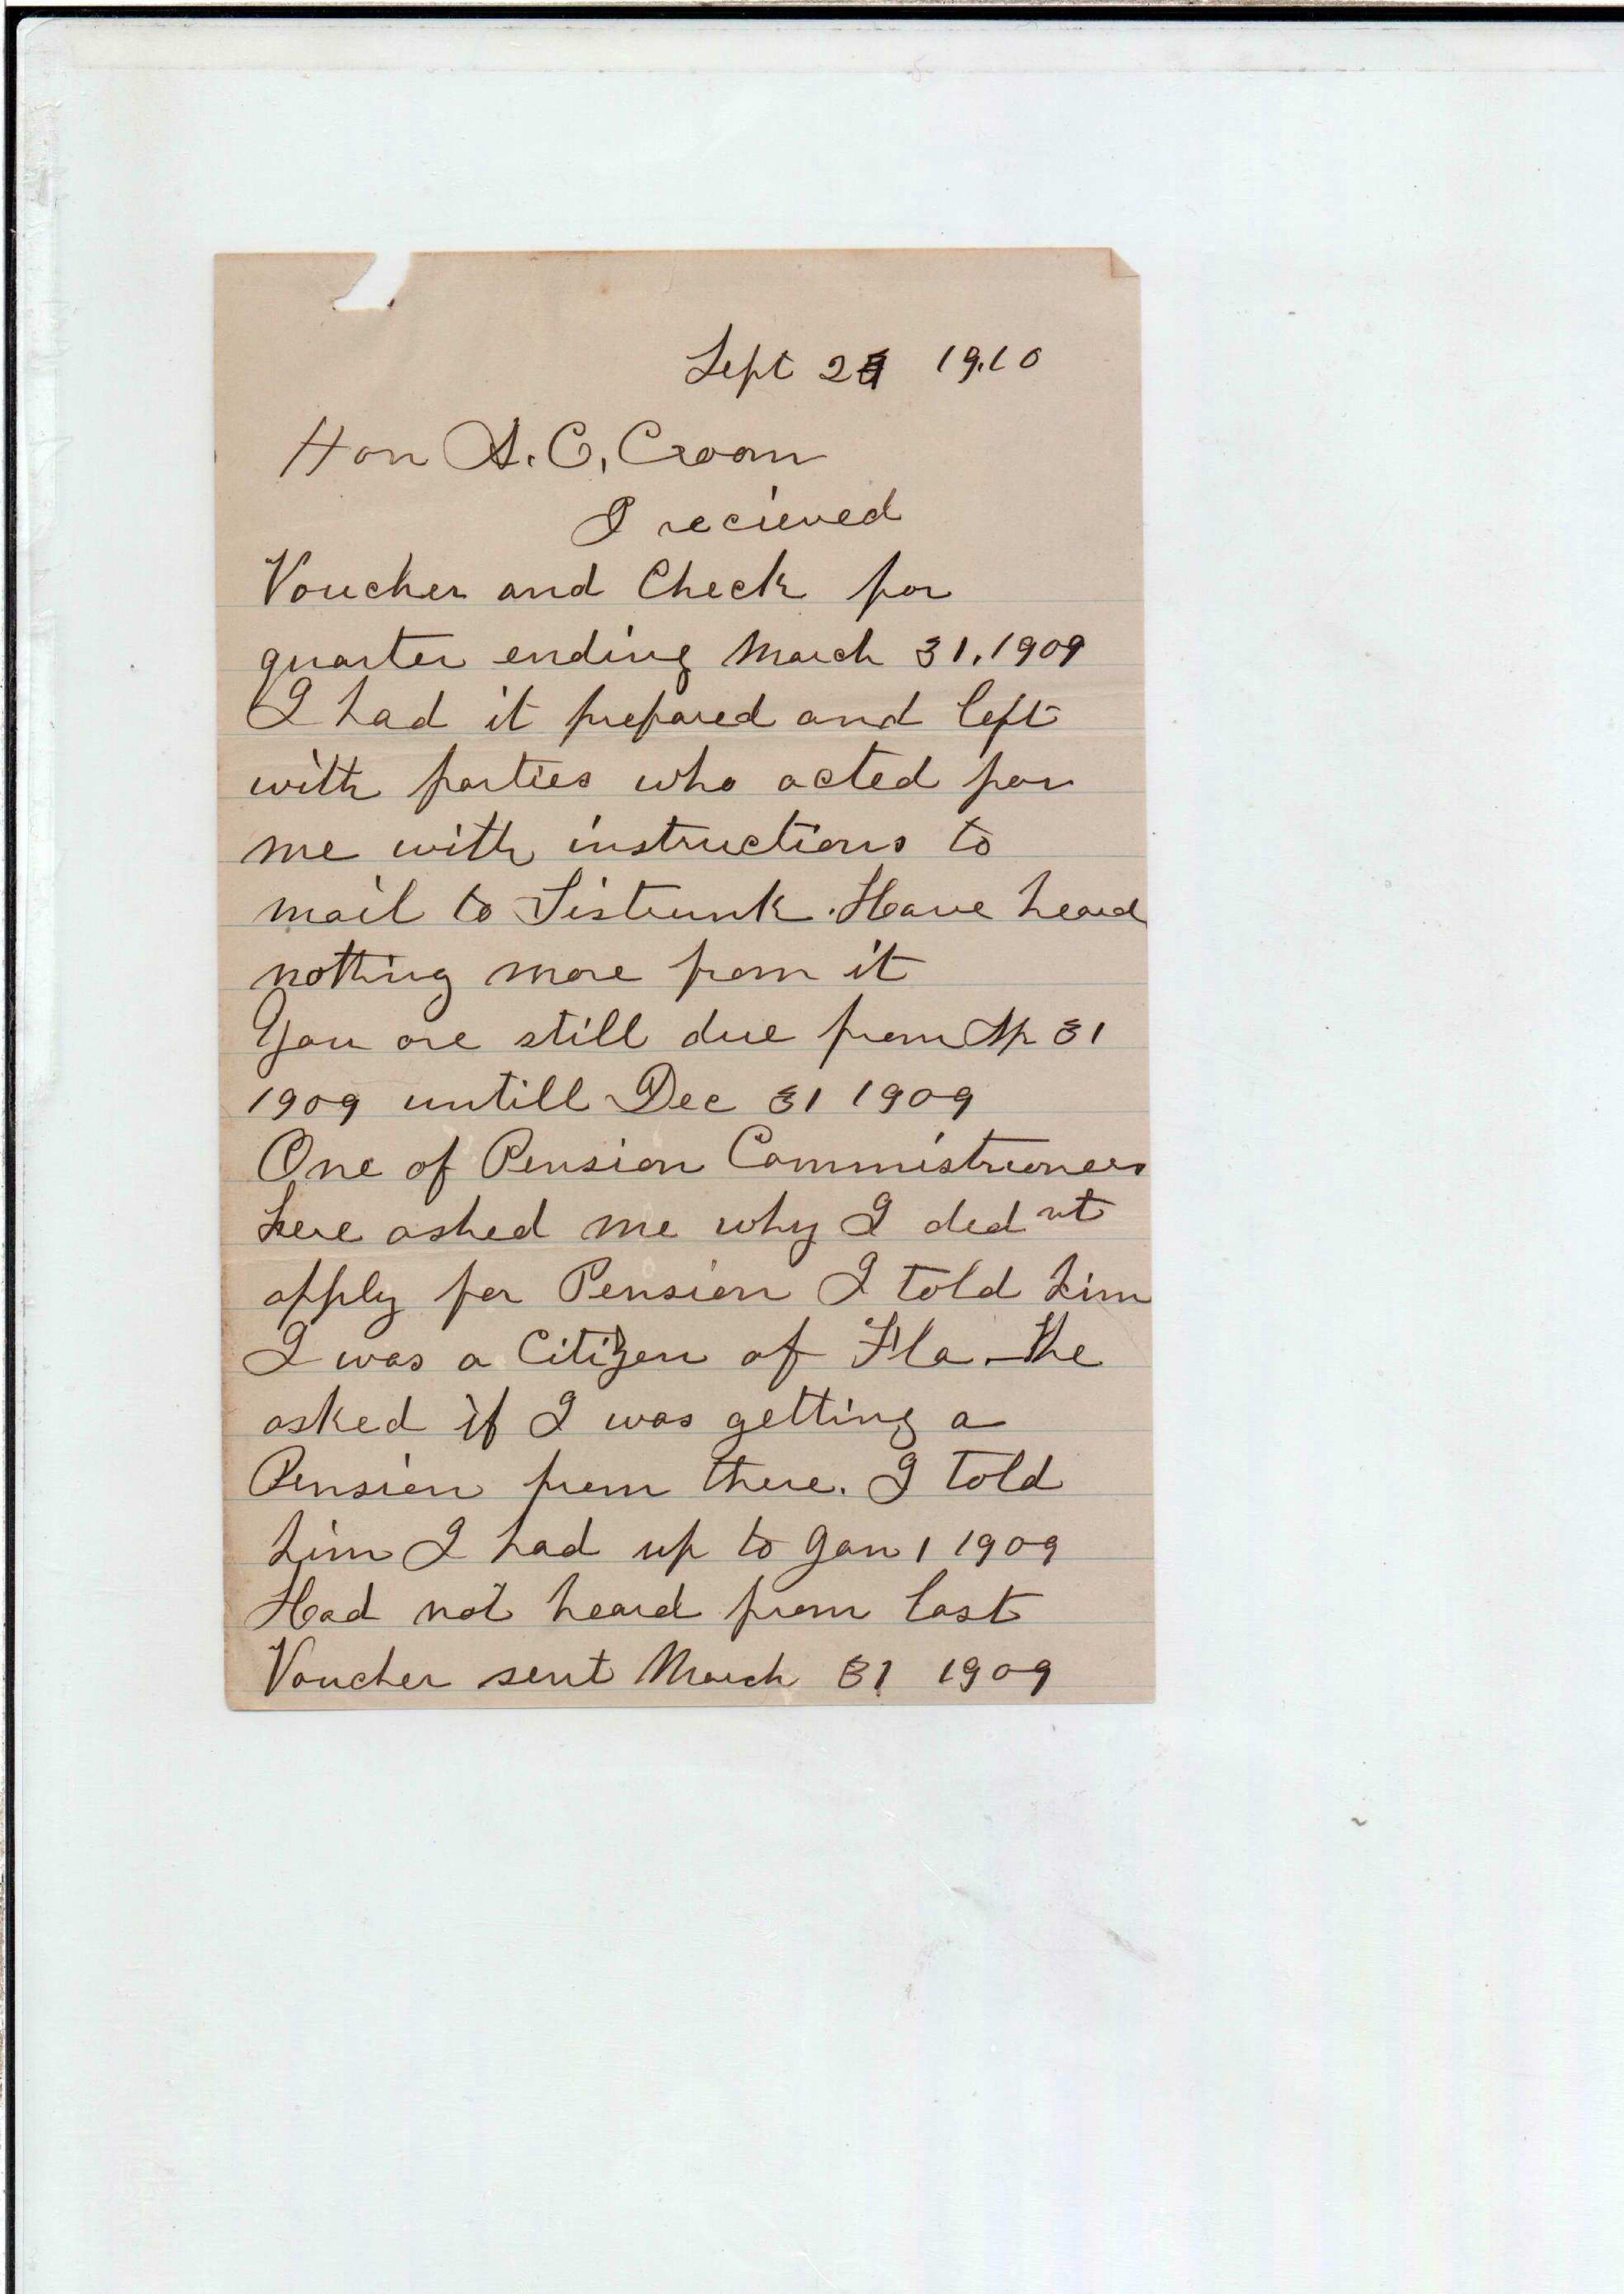 Sept 2 1910
Hon A. C, Croom
I recieved
Voucher and Check for
quarter ending March 31, 1909
I had it prepared and left
with parties who acted for
me with instructions to
mail to Sistrunk. Have heard
nothing more from it
You are still due from Ap 31
1909 untill Dec 31 1909
One of Pension Commistrioners
here asked me why I ded nt
apply for Pension I told him
I was a Citizen of Fla. He
asked if I was getting a
Pension from there. I told
him I had up to Jan 1 1909
Had not heard from last
Voucher sent March 31 1909